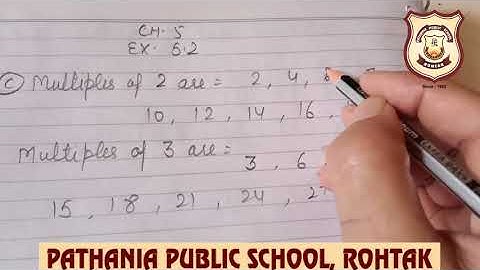 CH. 5
EX. 5.2
(c) Multiples of 2 are = 2, 4,
10, 12, 14, 16,
Multiples of 3 are =
3, 6
15, 18, 21, 24,
PATHANIA PUBLIC SCHOOL
ROHTAK
PATHANIA PUBLIC SCHOOL, ROHTAK